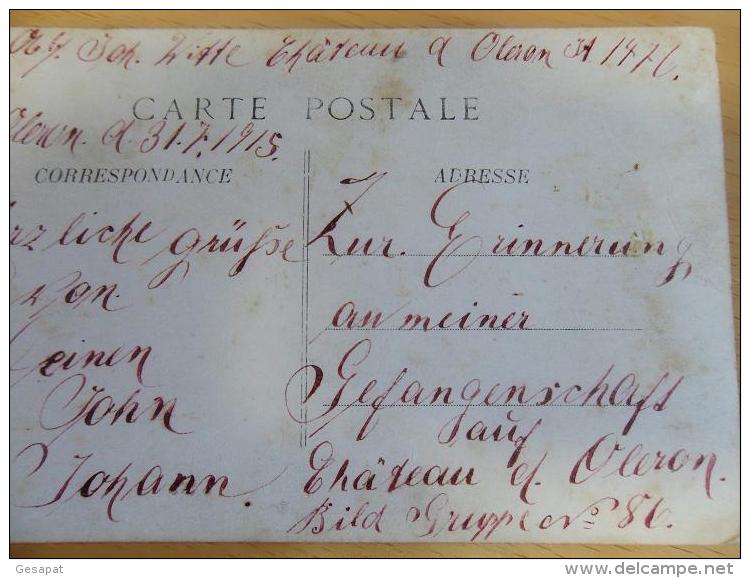 Joh. Witte Château d Oleron St 1476.
CARTE POSTALE
Oleron. d. 31.7.1915.
CORRESPONDANCE
ADRESSE
rzliche Grüsse
von
einen
John
Johann.
Zur. Erinnerung
an meiner
Gefangenschaft
auf
Château d. Oleron.
Bild Gruppe No 86.
Gesapat
delcampe.net